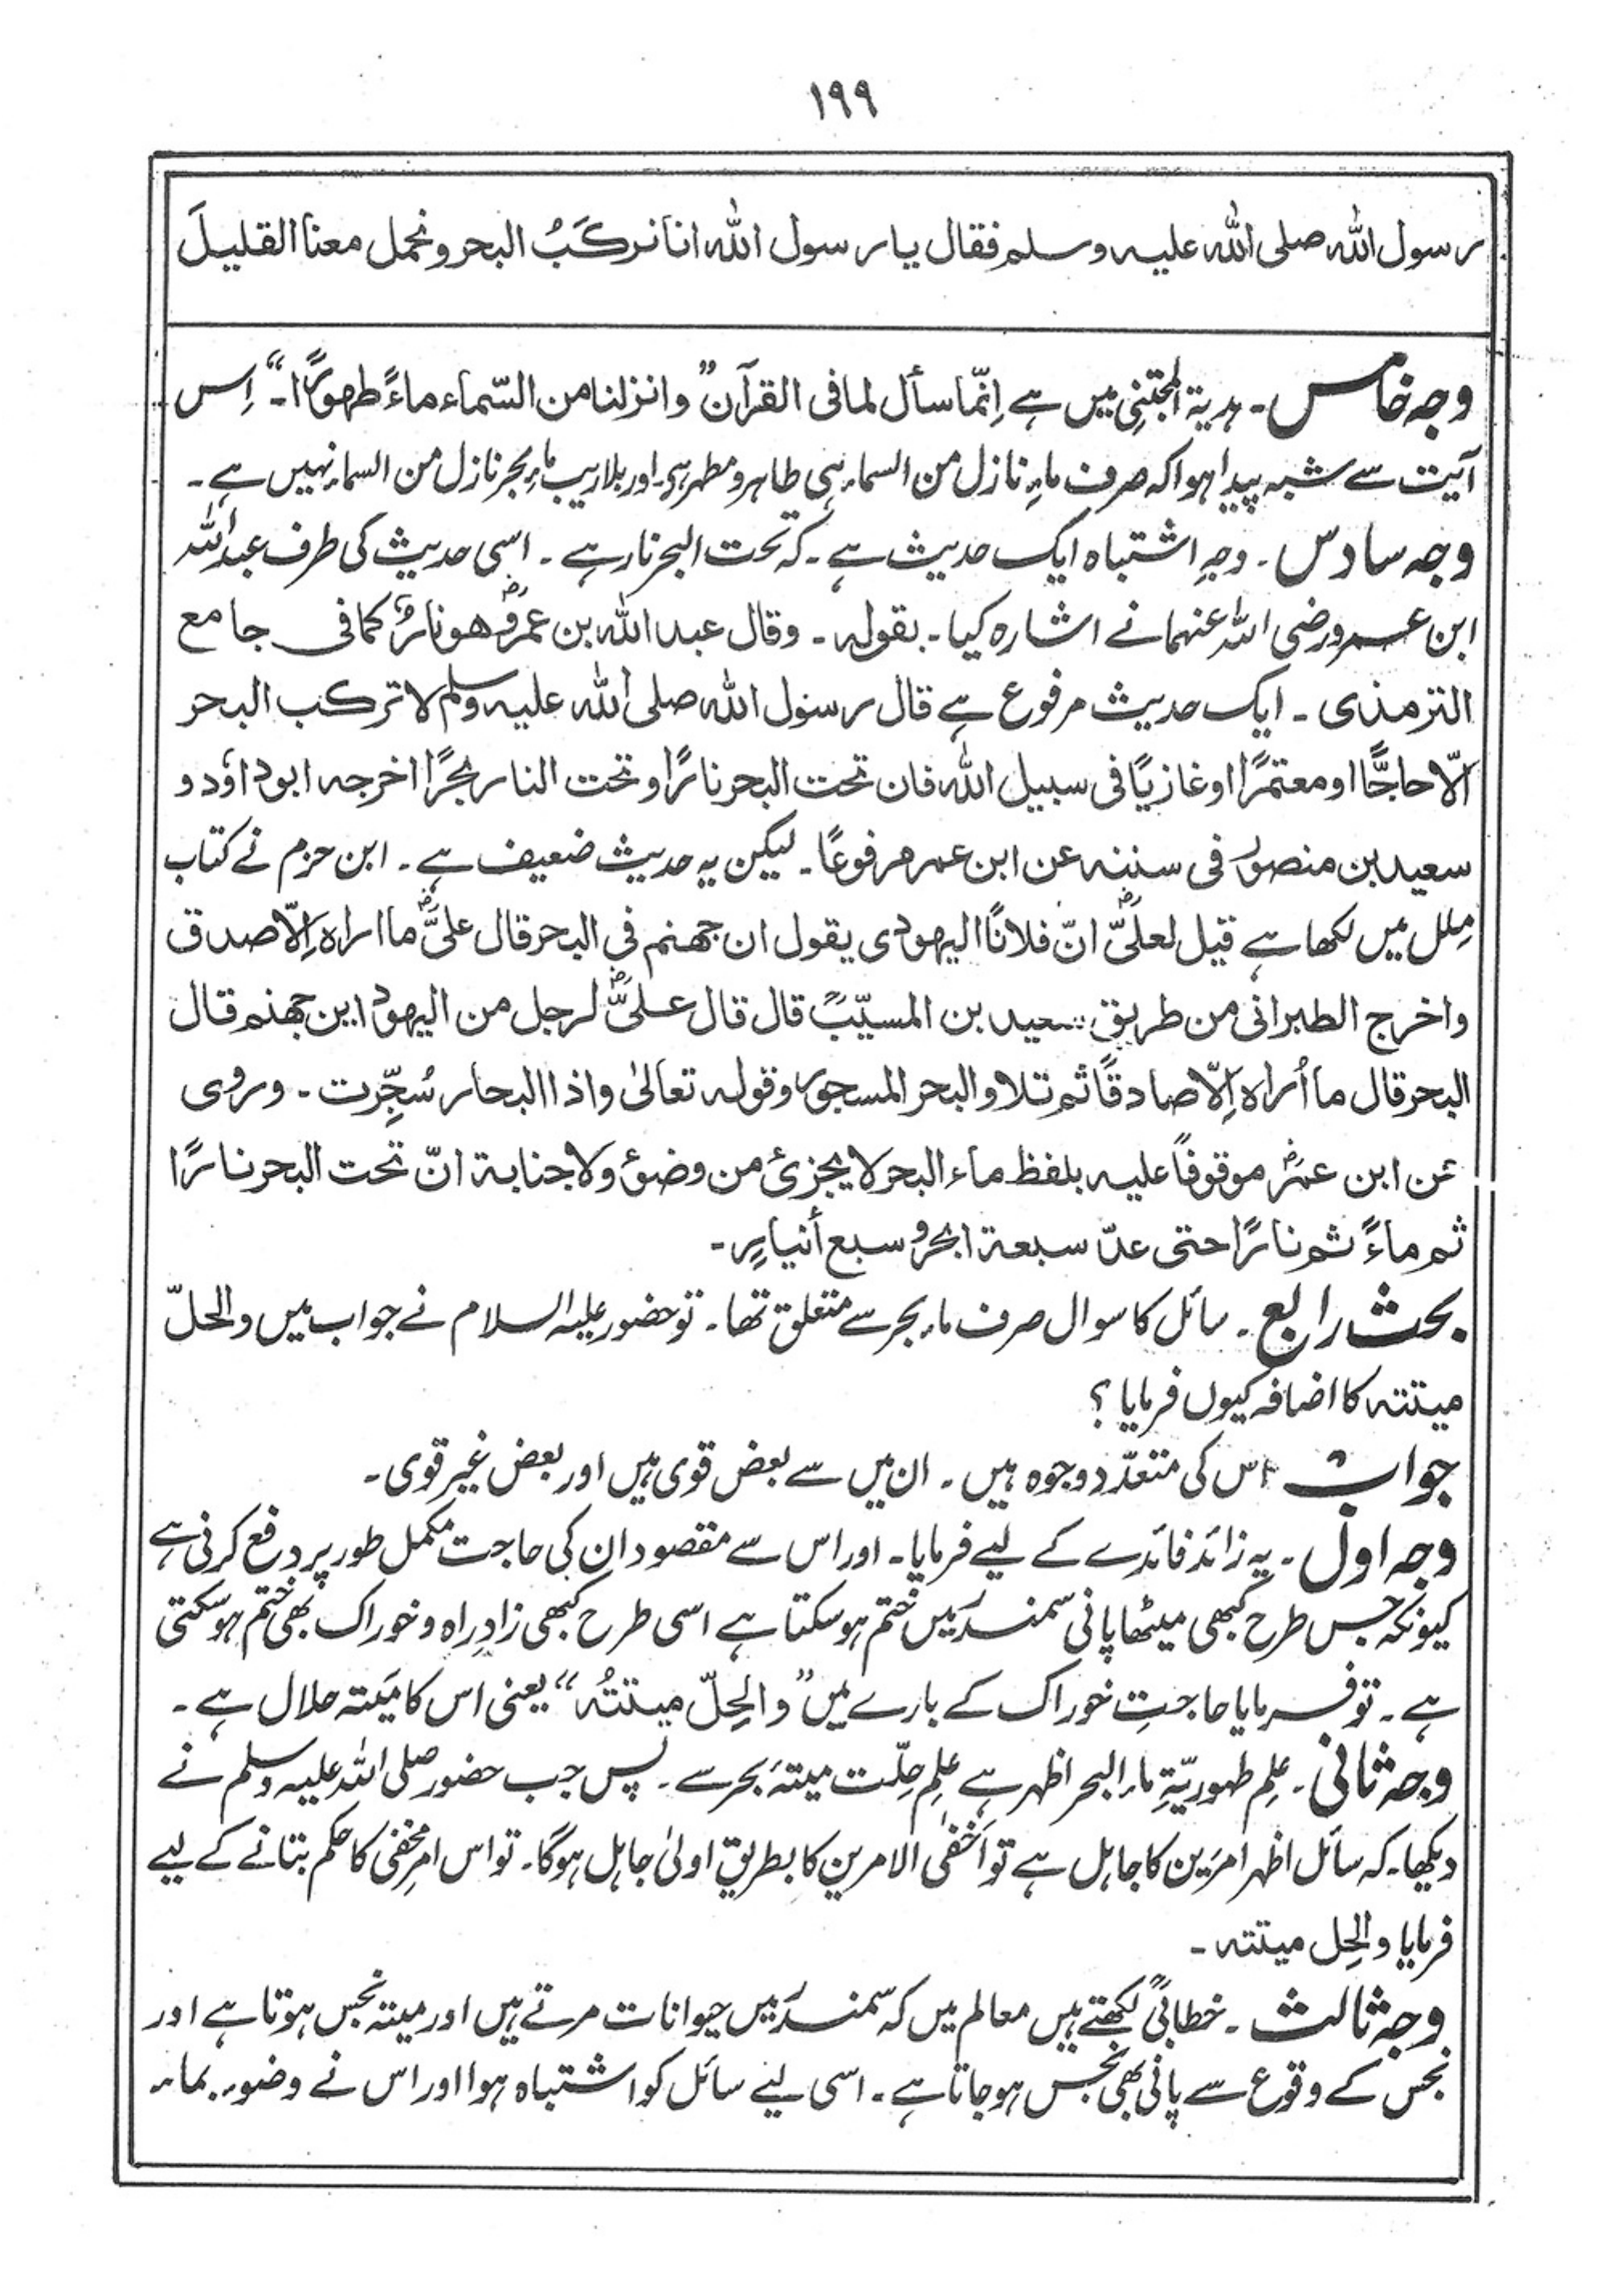 ۱۹۹
رسول الله صلی الله علیہ وسلم فقال یا رسول الله انا نرکَبُ البحر ونحمل معنا القلیلَ
وجہ خامس ۔ ہدیۃ المجتنی میں ہے اِنّما سأل لما فی القرآن ” وانزلنا من السّماء ماءً طهورًا ۔“ اِس
آیت سے شبہ پیدا ہوا کہ صرف ماءِ نازل من السماء ہی طاہر و مطہر ہے۔ اور بلا ریب ماءِ بحر نازل من السماء نہیں ہے ۔
وجہ سادس ۔ وجہِ اشتباہ ایک حدیث ہے ۔ کہ تحت البحر نار ہے ۔ اسی حدیث کی طرف عبد اللہ
ابن عمرو رضی اللہ عنہما نے اشارہ کیا ۔ بقولہ ۔ وقال عبد الله بن عمرو هو نارٌ کما فی جامع
الترمذی ۔ ایک حدیث مرفوع ہے قال رسول الله صلی الله علیہ وسلم لا ترکب البحر
الّا حاجًّا او معتمرًا او غازیًا فی سبیل الله فان تحت البحر نارًا و تحت النار بحرًا اخرجہ ابوداؤد و
سعید بن منصور فی سننہ عن ابن عمر مرفوعًا ۔ لیکن یہ حدیث ضعیف ہے ۔ ابن حزم نے کتاب
مِلل میں لکھا ہے قیل لعلیؓ انّ فلانًا الیهودی یقول ان جهنم فی البحر قال علیؓ ما اراہ اِلّا صدق
واخرج الطبرانی من طریق سعید بن المسیّبؒ قال قال علیؓ لرجل من الیهود این جهنم قال
البحر قال ما أُراہ اِلّا صادقًا ثم تلا والبحر المسجور وقولہ تعالیٰ واذا البحار سُجِّرت ۔ وروی
عن ابن عمرؓ موقوفًا علیہ بلفظ ماء البحر لا یجزئ من وضوء ولا جنابة انّ تحت البحر نارًا
ثم ماءً ثم نارًا حتی عدّ سبعة ابحر و سبع أنیارٍ ۔
بحث رابع ۔ سائل کا سوال صرف ماء بحر سے متعلق تھا ۔ تو حضور علیہ السلام نے جواب میں والحلّ
میتتہ کا اضافہ کیوں فرمایا ؟
جواب اس کی متعدّد وجوہ ہیں ۔ ان میں سے بعض قوی ہیں اور بعض غیر قوی ۔
وجہ اول ۔ یہ زائد فائدے کے لیے فرمایا ۔ اور اس سے مقصود ان کی حاجت مکمل طور پر دفع کرنی ہے
کیونکہ جس طرح کبھی میٹھا پانی سمندر میں ختم ہو سکتا ہے اسی طرح کبھی زادِ راہ و خوراک بھی ختم ہو سکتی
ہے ۔ تو فرمایا حاجتِ خوراک کے بارے میں ” والحِلّ میتتُہ “ یعنی اس کا مَیتہ حلال ہے ۔
وجہ ثانی ۔ علِم طہوریّۃِ ماء البحر اظہر ہے علِم حِلّت میتۂ بحر سے ۔ پس جب حضور صلی اللہ علیہ وسلم نے
دیکھا ۔ کہ سائل اظہر امرَین کا جاہل ہے تو اَخفٰی الامرین کا بطریقِ اولیٰ جاہل ہوگا ۔ تو اس امرِ مخفی کا حکم بتانے کے لیے
فرمایا والحِل میتتہ ۔
وجہ ثالث ۔ خطابیؒ لکھتے ہیں معالم میں کہ سمندر میں حیوانات مرتے ہیں اور میتہ نجس ہوتا ہے اور
نجس کے وقوع سے پانی بھی نجس ہو جاتا ہے ۔ اسی لیے سائل کو اشتباہ ہوا اور اس نے وضوء بماء